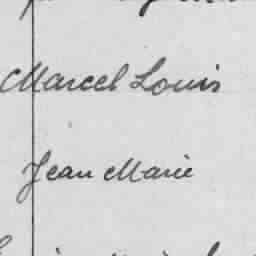 Marcel Louis
Jean Marie